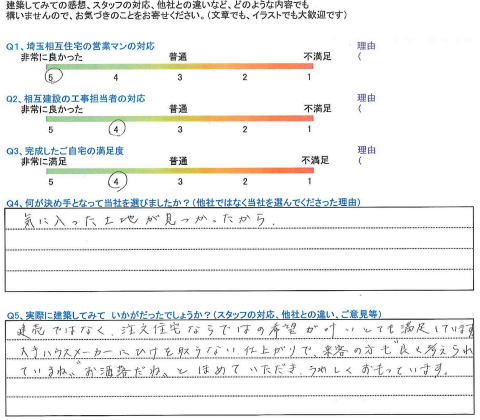 建築してみての感想、スタッフの対応、他社との違いなど、どのような内容でも
構いませんので、お気づきのことをお寄せください。(文章でも、イラストでも大歓迎です)
Q1、埼玉相互住宅の営業マンの対応
理由
非常に良かった 普通 不満足
(
5 4 3 2 1
Q2、相互建設の工事担当者の対応
理由
非常に良かった 普通 不満足
(
5 4 3 2 1
Q3、完成したご自宅の満足度
理由
非常に満足 普通 不満足
(
5 4 3 2 1
Q4、何が決め手となって当社を選びましたか?(他社ではなく当社を選んでくださった理由)
気に入った土地が見つかったから.
Q5、実際に建築してみて いかがだったでしょうか?(スタッフの対応、他社との違い、ご意見等)
建売ではなく、注文住宅ならではの希望が叶いとても満足しています
大手ハウスメーカーにひけを取らない仕上がりで、来客の方も"良く考えられ
ていますね""お洒落だね"と ほめていただき、うれしくおもっています。